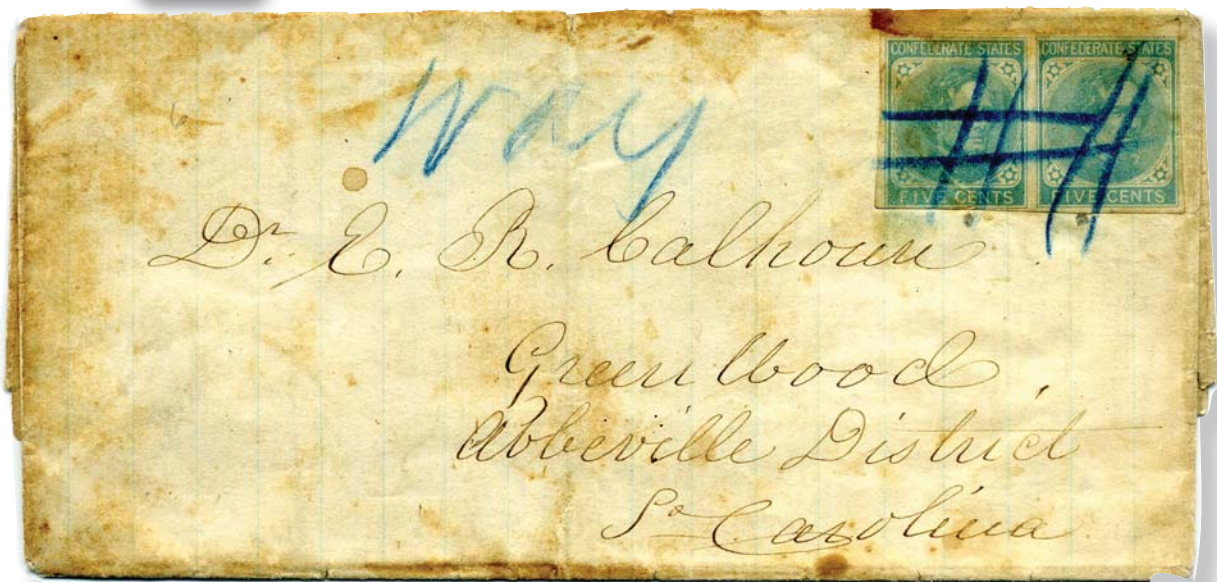 CONFEDERATE STATES CONFEDERATE STATES
FIVE CENTS FIVE CENTS
Way
Dr. E. R. Calhoun
Green Wood,
Abbeville District
So Carolina